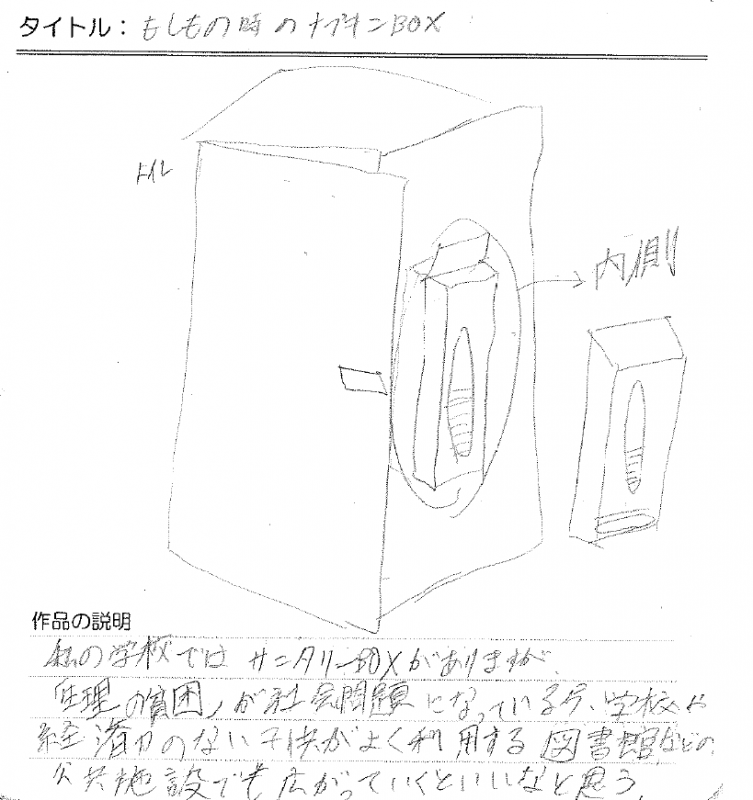 タイトル：もしもの時のナプキンBOX
トイレ
内側
作品の説明
私の学校ではサニタリーBOXがありますが、
「生理の貧困」が社会問題になっている今、学校や
経済力のない子供がよく利用する図書館などの
公共施設でも広がっていくといいなと思う。